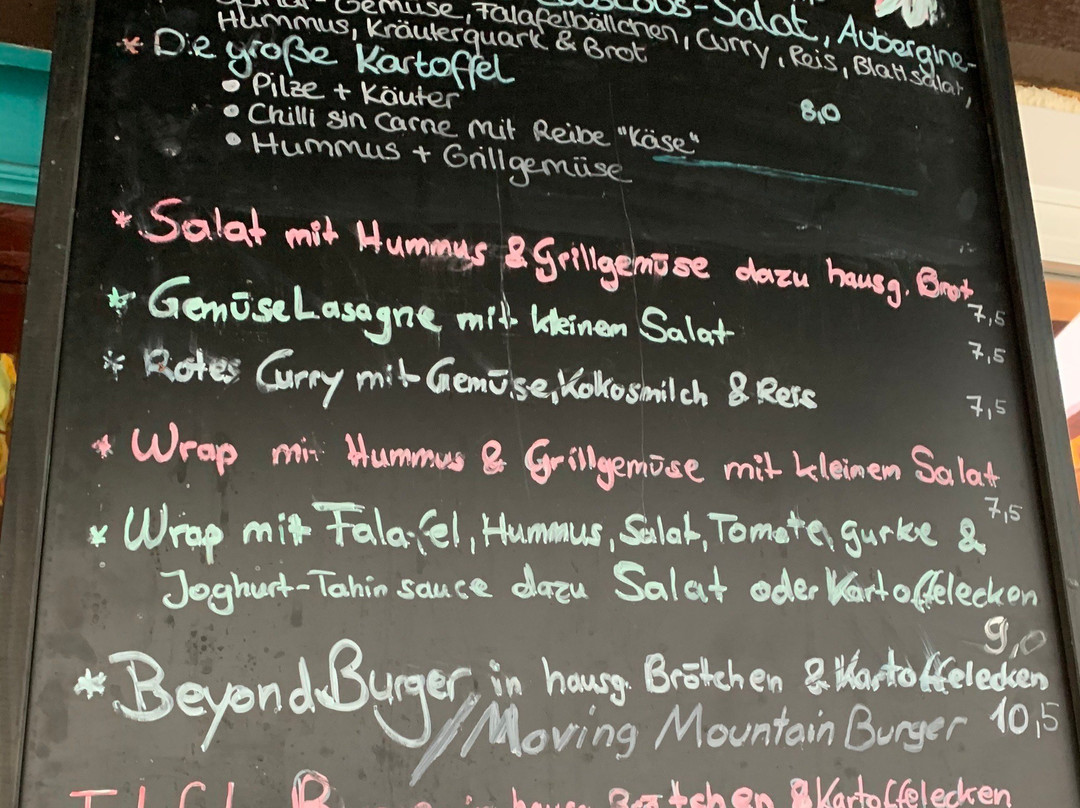 -Gemüse, Falafelbällchen, Curry, Reis, Blattsalat,
-Salat, Aubergine-
Hummus, Kräuterquark & Brot
* Die große Kartoffel
• Pilze + Käuter
8,0
• Chilli sin carne mit Reibe "Käse"
• Hummus + Grillgemüse
* Salat mit Hummus & Grillgemüse dazu hausg. Brot
7,5
* GemüseLasagne mit kleinem Salat
7,5
* Rotes Curry mit Gemüse, Kokosmilch & Reis
7,5
* Wrap mit Hummus & Grillgemüse mit kleinem Salat
7,5
* Wrap mit Falafel, Hummus, Salat, Tomate, gurke &
Joghurt-Tahin sauce dazu Salat oder Kartoffelecken
9,0
* Beyond Burger in hausg. Brötchen & Kartoffelecken
/Moving Mountain Burger 10,5
Brötchen & Kartoffelecken